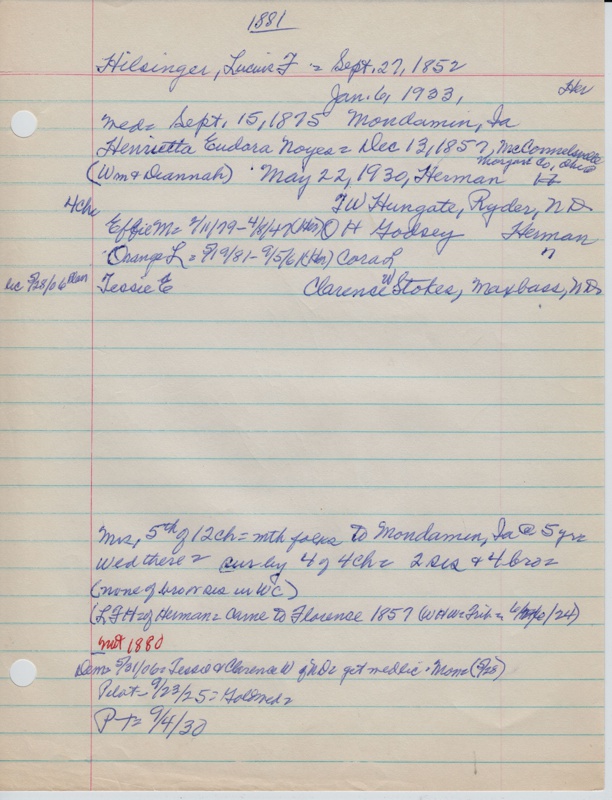 1881
Hilsinger, Lucius F = Sept. 27, 1852
Jan. 6, 1933, Her
Med = Sept, 15, 1875 Mondamin, Ia
Henrietta Eudora Noyes = Dec 13, 1857, McConnelsville
Morgan Co, Ohio
(Wm & Deannah) · May 22, 1930, Herman
4 Ch =
F W Hungate, Ryder, N D
Effie M = 2/11/79 - 4/8/47 (Her) O H Godsey Herman
Orange L = 5/19/81 - 9/5/61 (Her) Cora L "
Lic 5/28/06 Tessie E Clarence W Stokes, Maxbass, N D
Mrs, 5th of 12 ch = mth folks to Mondamin, Ia @ 5 yrs
wed there = sur by 4 of 4 ch = 2 sis & 4 bro =
(none of bro or sis in W C)
(L F H = of Herman = came to Florence 1857 (W H W Trib =
not 1880
Dem = 5/31/06 = Tessie & Clarence W of N D = get med lic · Mon = (5/28)
Pilot - 9/23/25 = Gold Wed =
P-T = 9/4/30